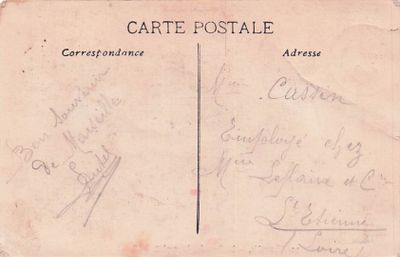 CARTE POSTALE
Correspondance
Adresse
Bon Souvenir
de Marseille
Mme
Cassin
Employé chez
Mme Leflaive et Cie
St Etienne
(Loire)